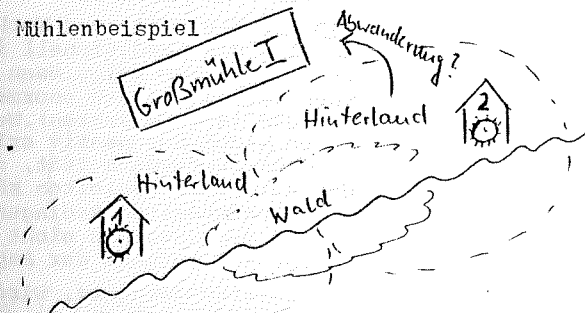 Mühlenbeispiel
Großmühle I
Abwanderung?
Hinterland
2
Hinterland
1
Wald